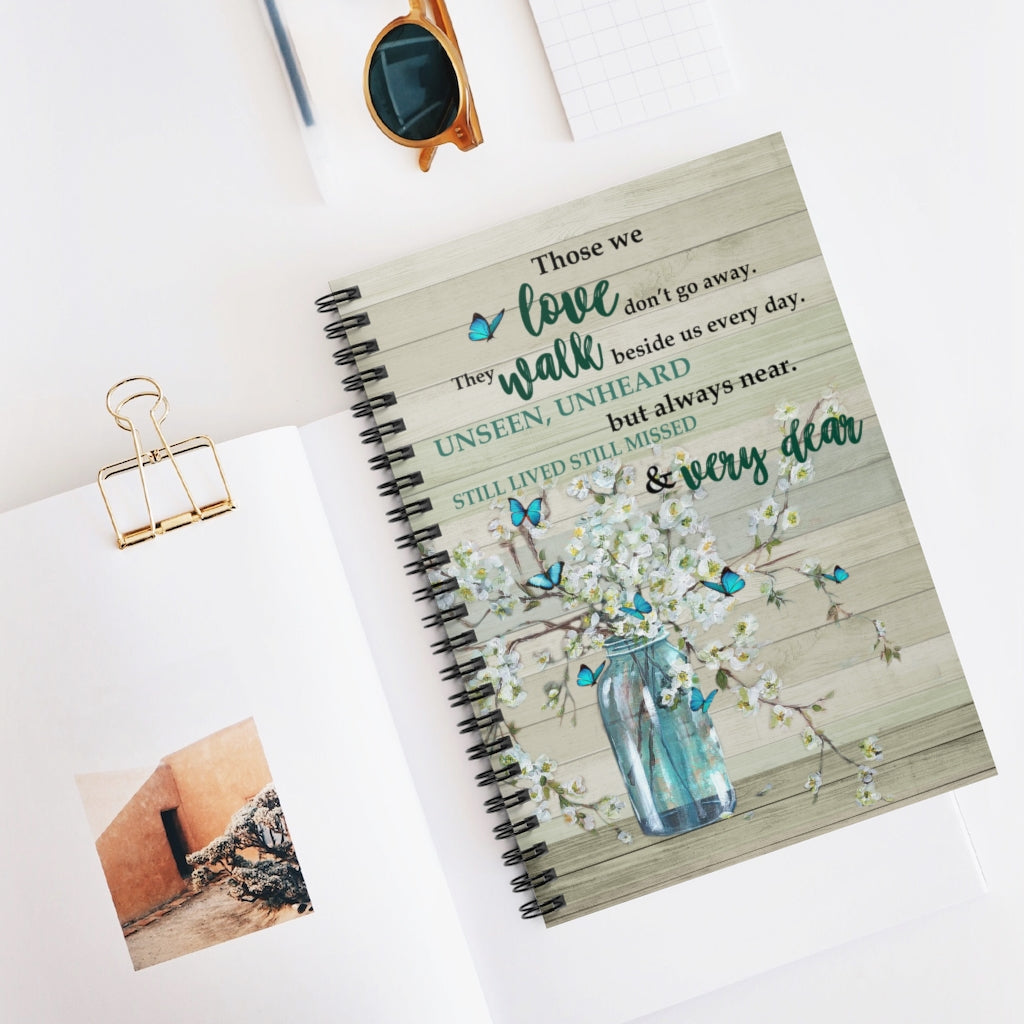 Those we
love don't go away.
They walk beside us every day.
UNSEEN, UNHEARD
but always near.
STILL LIVED STILL MISSED
& very dear